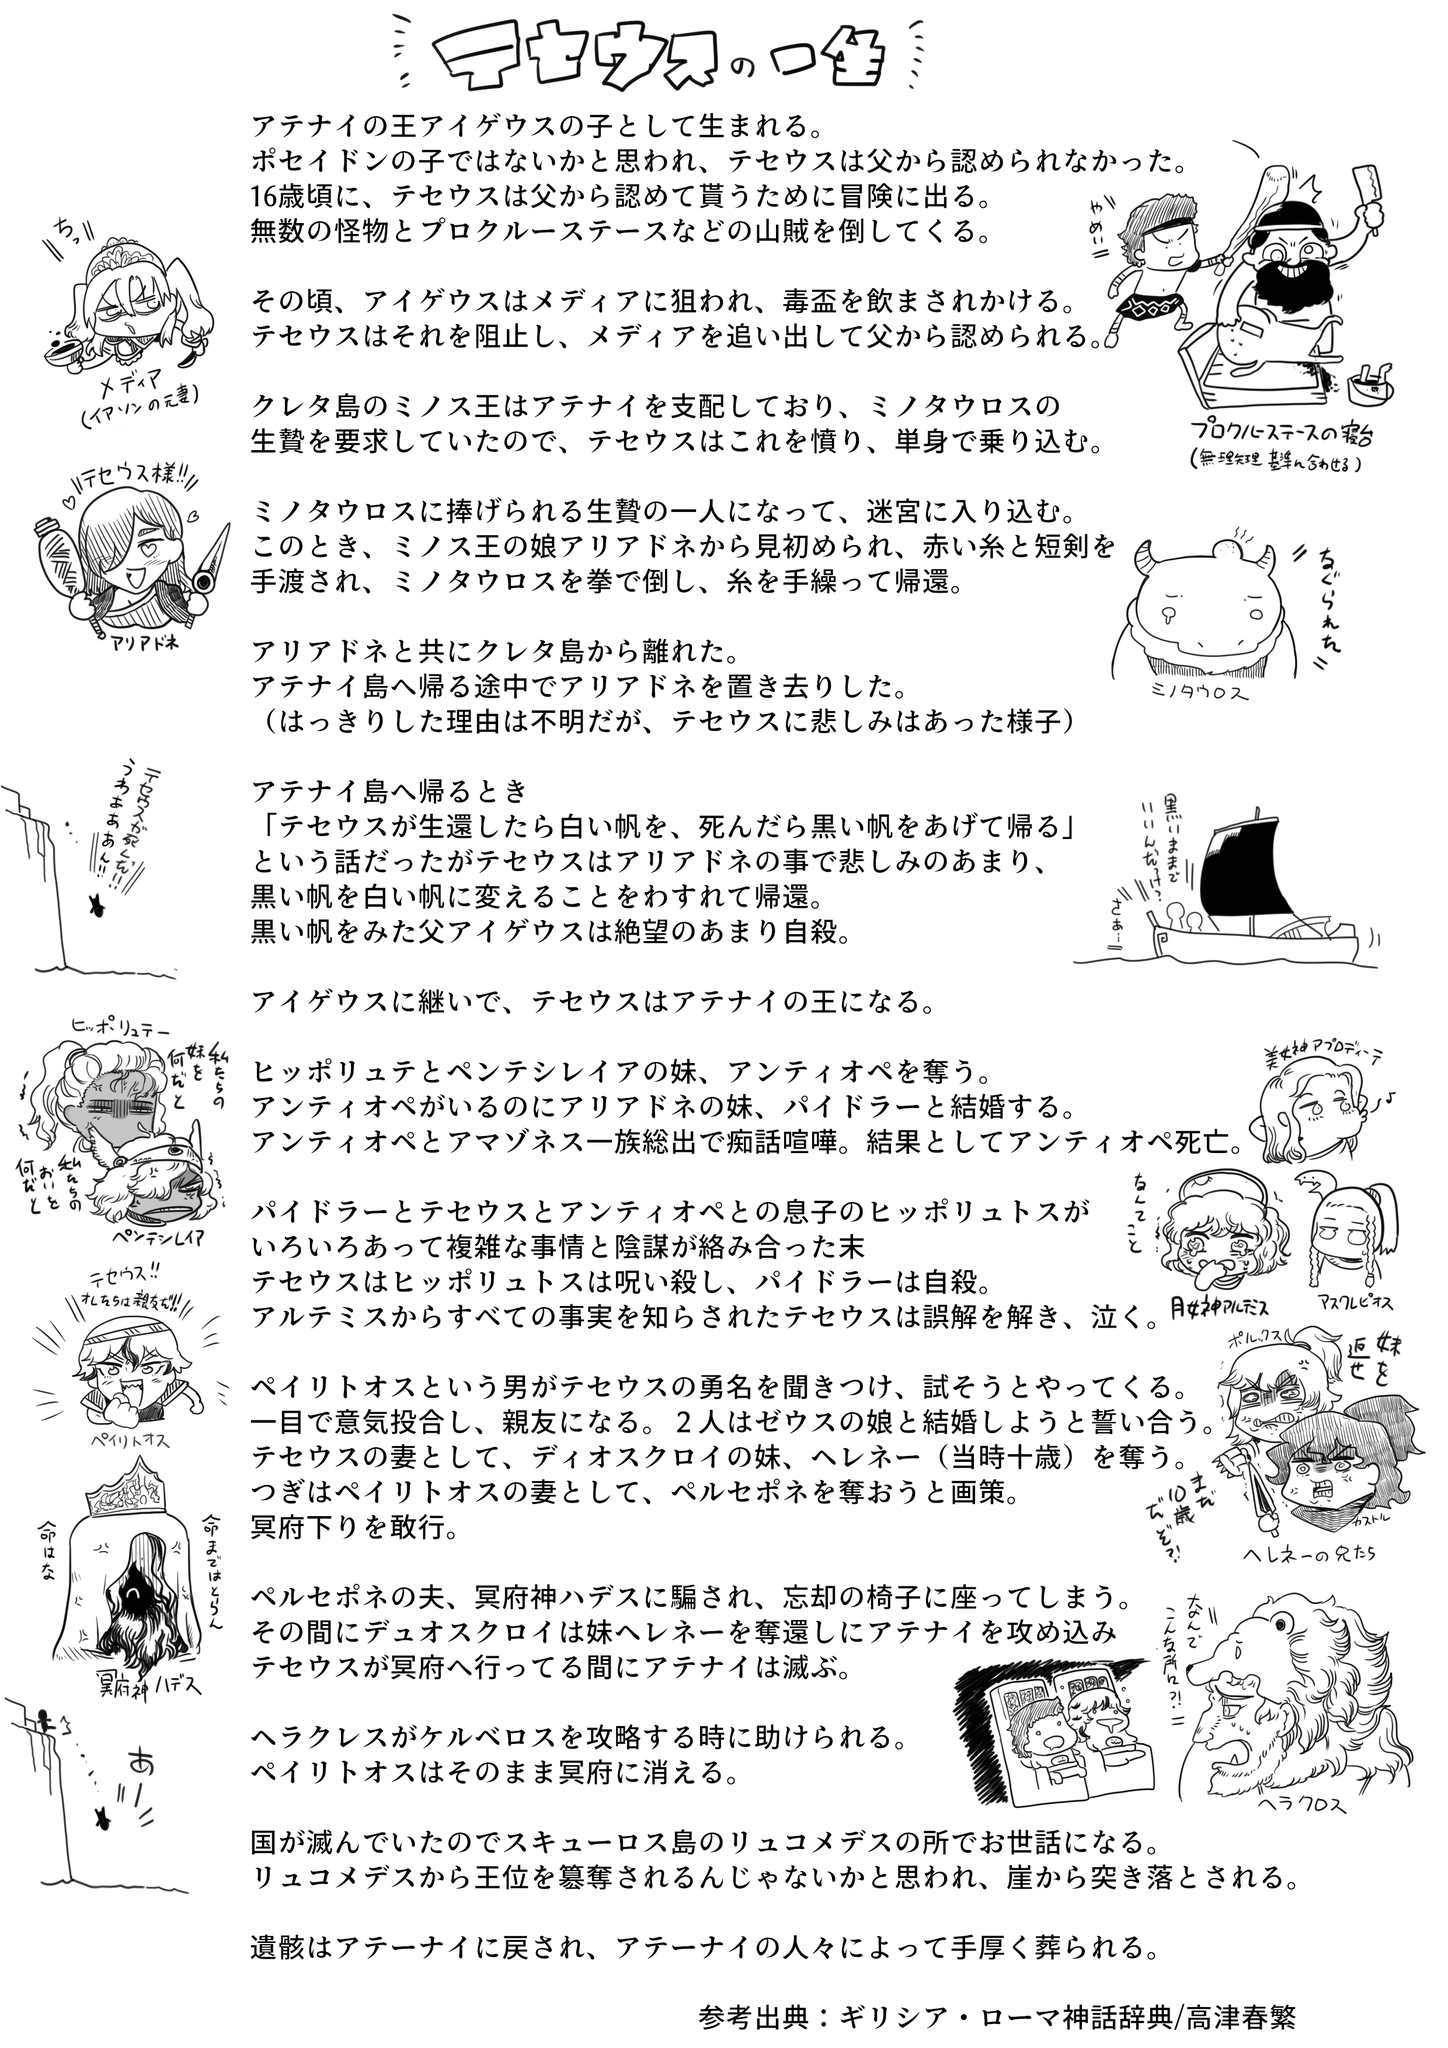 テセウスの一生
アテナイの王アイゲウスの子として生まれる。
ポセイドンの子ではないかと思われ、テセウスは父から認められなかった。
16歳頃に、テセウスは父から認めて貰うために冒険に出る。
無数の怪物とプロクルーステースなどの山賊を倒してくる。
やめい
プロクルーステースの寝台
(無理矢理 基準に合わせる)
ちっ
メディア
(イアソンの元妻)
その頃、アイゲウスはメディアに狙われ、毒盃を飲まされかける。
テセウスはそれを阻止し、メディアを追い出して父から認められる。
クレタ島のミノス王はアテナイを支配しており、ミノタウロスの
生贄を要求していたので、テセウスはこれを憤り、単身で乗り込む。
テセウス様!!
アリアドネ
ミノタウロスに捧げられる生贄の一人になって、迷宮に入り込む。
このとき、ミノス王の娘アリアドネから見初められ、赤い糸と短剣を
手渡され、ミノタウロスを拳で倒し、糸を手繰って帰還。
なぐられた
ミノタウロス
アリアドネと共にクレタ島から離れた。
アテナイ島へ帰る途中でアリアドネを置き去りした。
（はっきりした理由は不明だが、テセウスに悲しみはあった様子）
テセウスが死んだ!!
うわぁぁぁぁん!!
アテナイ島へ帰るとき
「テセウスが生還したら白い帆を、死んだら黒い帆をあげて帰る」
という話だったがテセウスはアリアドネの事で悲しみのあまり、
黒い帆を白い帆に変えることをわすれて帰還。
黒い帆をみた父アイゲウスは絶望のあまり自殺。
黒いままで
いいんだっけ?
さぁ…
アイゲウスに継いで、テセウスはアテナイの王になる。
ヒッポリュテー
私たちの
妹を
何だと
私たちの
おいを
何だと
ペンテシレイア
ヒッポリュテとペンテシレイアの妹、アンティオペを奪う。
アンティオペがいるのにアリアドネの妹、パイドラーと結婚する。
アンティオペとアマゾネス一族総出で痴話喧嘩。結果としてアンティオペ死亡。
美女神アプロディーテ
パイドラーとテセウスとアンティオペとの息子のヒッポリュトスが
いろいろあって複雑な事情と陰謀が絡み合った末
テセウスはヒッポリュトスは呪い殺し、パイドラーは自殺。
アルテミスからすべての事実を知らされたテセウスは誤解を解き、泣く。
なんてこと
月女神アルテミス
アスクレピオス
テセウス!!
オレたちは親友だ!!
ペイリトオス
ペイリトオスという男がテセウスの勇名を聞きつけ、試そうとやってくる。
一目で意気投合し、親友になる。２人はゼウスの娘と結婚しようと誓い合う。
テセウスの妻として、ディオスクロイの妹、ヘレネー（当時十歳）を奪う。
つぎはペイリトオスの妻として、ペルセポネを奪おうと画策。
冥府下りを敢行。
ポルックス
妹を
返せ
まだ
10歳
だぞ?!
カストル
ヘレネーの兄たち
命まではとらん
命はな
冥府神ハデス
ペルセポネの夫、冥府神ハデスに騙され、忘却の椅子に座ってしまう。
その間にデュオスクロイは妹ヘレネーを奪還しにアテナイを攻め込み
テセウスが冥府へ行ってる間にアテナイは滅ぶ。
なんで
こんな所に?!
ヘラクロス
ヘラクレスがケルベロスを攻略する時に助けられる。
ペイリトオスはそのまま冥府に消える。
あ
国が滅んでいたのでスキューロス島のリュコメデスの所でお世話になる。
リュコメデスから王位を簒奪されるんじゃないかと思われ、崖から突き落とされる。
遺骸はアテーナイに戻され、アテーナイの人々によって手厚く葬られる。
参考出典：ギリシア・ローマ神話辞典/高津春繁